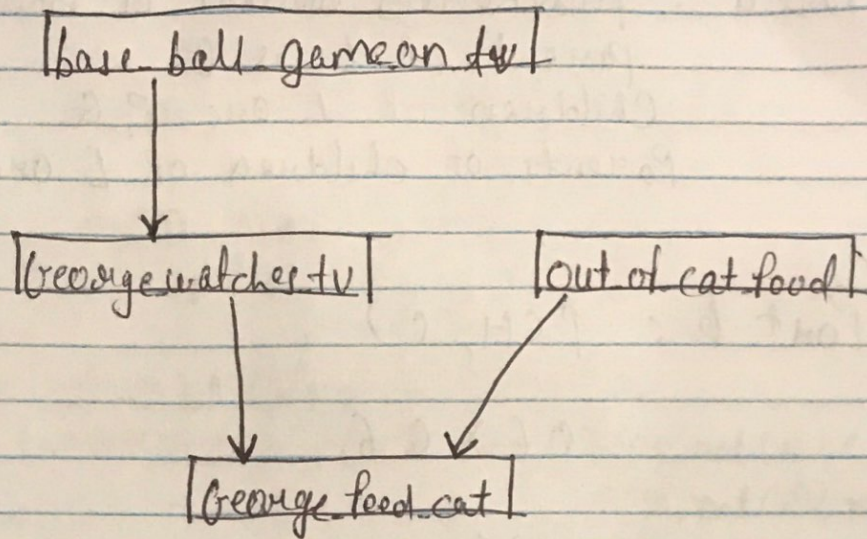 base_ball_game_on_tv
George_watches_tv
out_of_cat_food
George_feed_cat